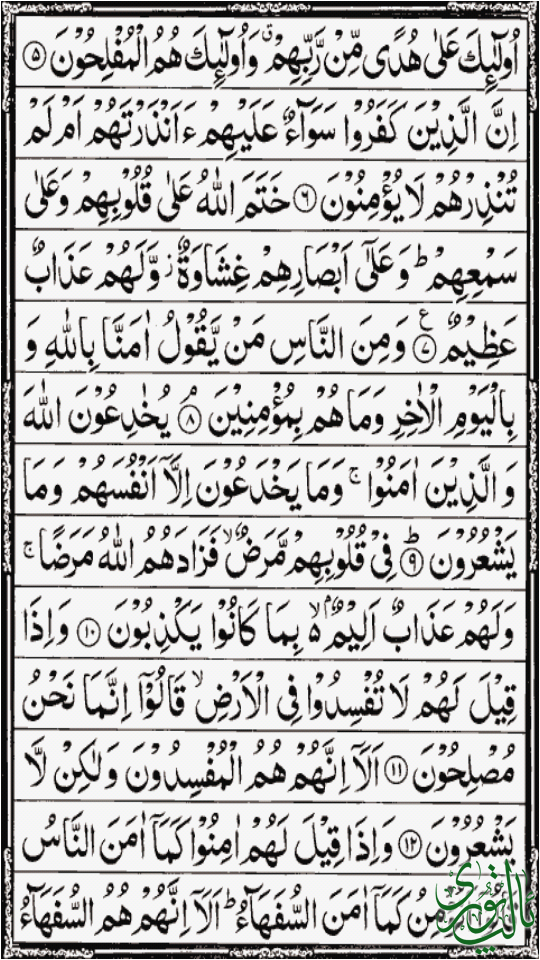 اُولٰٓئِكَ عَلٰى هُدًى مِّنْ رَّبِّهِمْ ۗ وَاُولٰٓئِكَ هُمُ الْمُفْلِحُوْنَ ۝۵
اِنَّ الَّذِيْنَ كَفَرُوْا سَوَآءٌ عَلَيْهِمْ ءَاَنْذَرْتَهُمْ اَمْ لَمْ
تُنْذِرْهُمْ لَا يُؤْمِنُوْنَ ۝۶ خَتَمَ اللّٰهُ عَلٰى قُلُوْبِهِمْ وَعَلٰى
سَمْعِهِمْ ؕ وَعَلٰٓى اَبْصَارِهِمْ غِشَاوَةٌ ز وَّلَهُمْ عَذَابٌ
عَظِيْمٌ ۝۷ ع وَمِنَ النَّاسِ مَنْ يَّقُوْلُ اٰمَنَّا بِاللّٰهِ وَ
بِالْيَوْمِ الْاٰخِرِ وَمَا هُمْ بِمُؤْمِنِيْنَ ۝۸ۘ يُخٰدِعُوْنَ اللّٰهَ
وَالَّذِيْنَ اٰمَنُوْا ۚ وَمَا يَخْدَعُوْنَ اِلَّآ اَنْفُسَهُمْ وَمَا
يَشْعُرُوْنَ ۝۹ؕ فِىْ قُلُوْبِهِمْ مَّرَضٌ ۙ فَزَادَهُمُ اللّٰهُ مَرَضًا ۚ
وَلَهُمْ عَذَابٌ اَلِيْمٌۢ ۙ۵ بِمَا كَانُوْا يَكْذِبُوْنَ ۝۱۰ وَاِذَا
قِيْلَ لَهُمْ لَا تُفْسِدُوْا فِى الْاَرْضِ ۙ قَالُوْٓا اِنَّمَا نَحْنُ
مُصْلِحُوْنَ ۝۱۱ اَلَآ اِنَّهُمْ هُمُ الْمُفْسِدُوْنَ وَلٰكِنْ لَّا
يَشْعُرُوْنَ ۝۱۲ وَاِذَا قِيْلَ لَهُمْ اٰمِنُوْا كَمَآ اٰمَنَ النَّاسُ
كَمَآ اٰمَنَ السُّفَهَآءُ ؕ اَلَآ اِنَّهُمْ هُمُ السُّفَهَآءُ